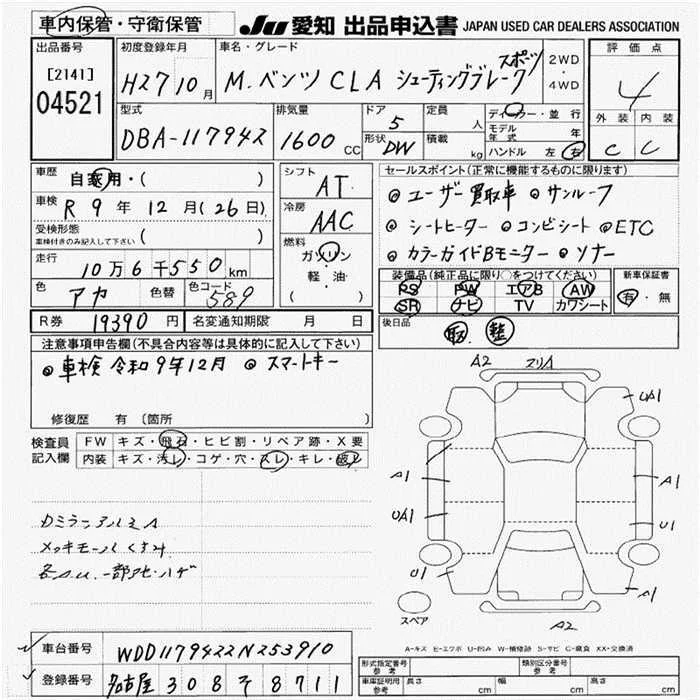 車内保管・守衛保管
JU 愛知 出品申込書 JAPAN USED CAR DEALERS ASSOCIATION
出品番号
[2141]
04521
初度登録年月
H27 10月
車名・グレード
M.ベンツ CLA シューティングブレーク スポーツ
2WD・4WD
評価点
4
外装 内装
C C
型式
DBA-117942
排気量
1600 CC
ドア
5
形状
DW
定員
人
積載
kg
ディーラー・並行
モデル年式 年
ハンドル 左 右
車歴
自家用・( )
車検
R 9 年 12 月 (26 日)
受検形態
車検付きのみ記入して下さい ( )
走行
10万6千550km
色
アカ
色替
色コード
589
シフト
AT
冷房
AAC
燃料
ガソリン
軽・油
( )
セールスポイント(正常に機能するものに限ります)
◎ユーザー買取車 ◎サンルーフ
◎シートヒーター ◎コンビシート ◎ETC
◎カラーガイドBモニター ◎ソナー
装備品(純正品に限り○をつけてください)
PS PW エアB AW
SR ナビ TV カワシート
新車保証書
有・無
R券 19390 円
名変通知期限 月 日
後日品
取 整
注意事項申告欄(不具合内容等は具体的に記入して下さい)
◎車検 令和9年12月 ◎スマートキー
修復歴 有 〔箇所 〕
検査員記入欄
FW キズ・飛石・ヒビ割・リペア跡・X要
内装 キズ・汚レ・コゲ・穴・スレ・キレ・破レ
メッキモールくすみ
A2
UA1
A1
A1
UA1
U1
U1
A1
A2
スペア
A-キズ E-エクボ U-凹み W-補修跡 S-サビ C-腐食 XX-交換済
車台番号 WDD1179422N253910
登録番号 名古屋 308 そ 8711
形式指定番号 参考
類別区分番号 参考
車庫証明用 参考
長さ cm 幅 cm 高さ cm